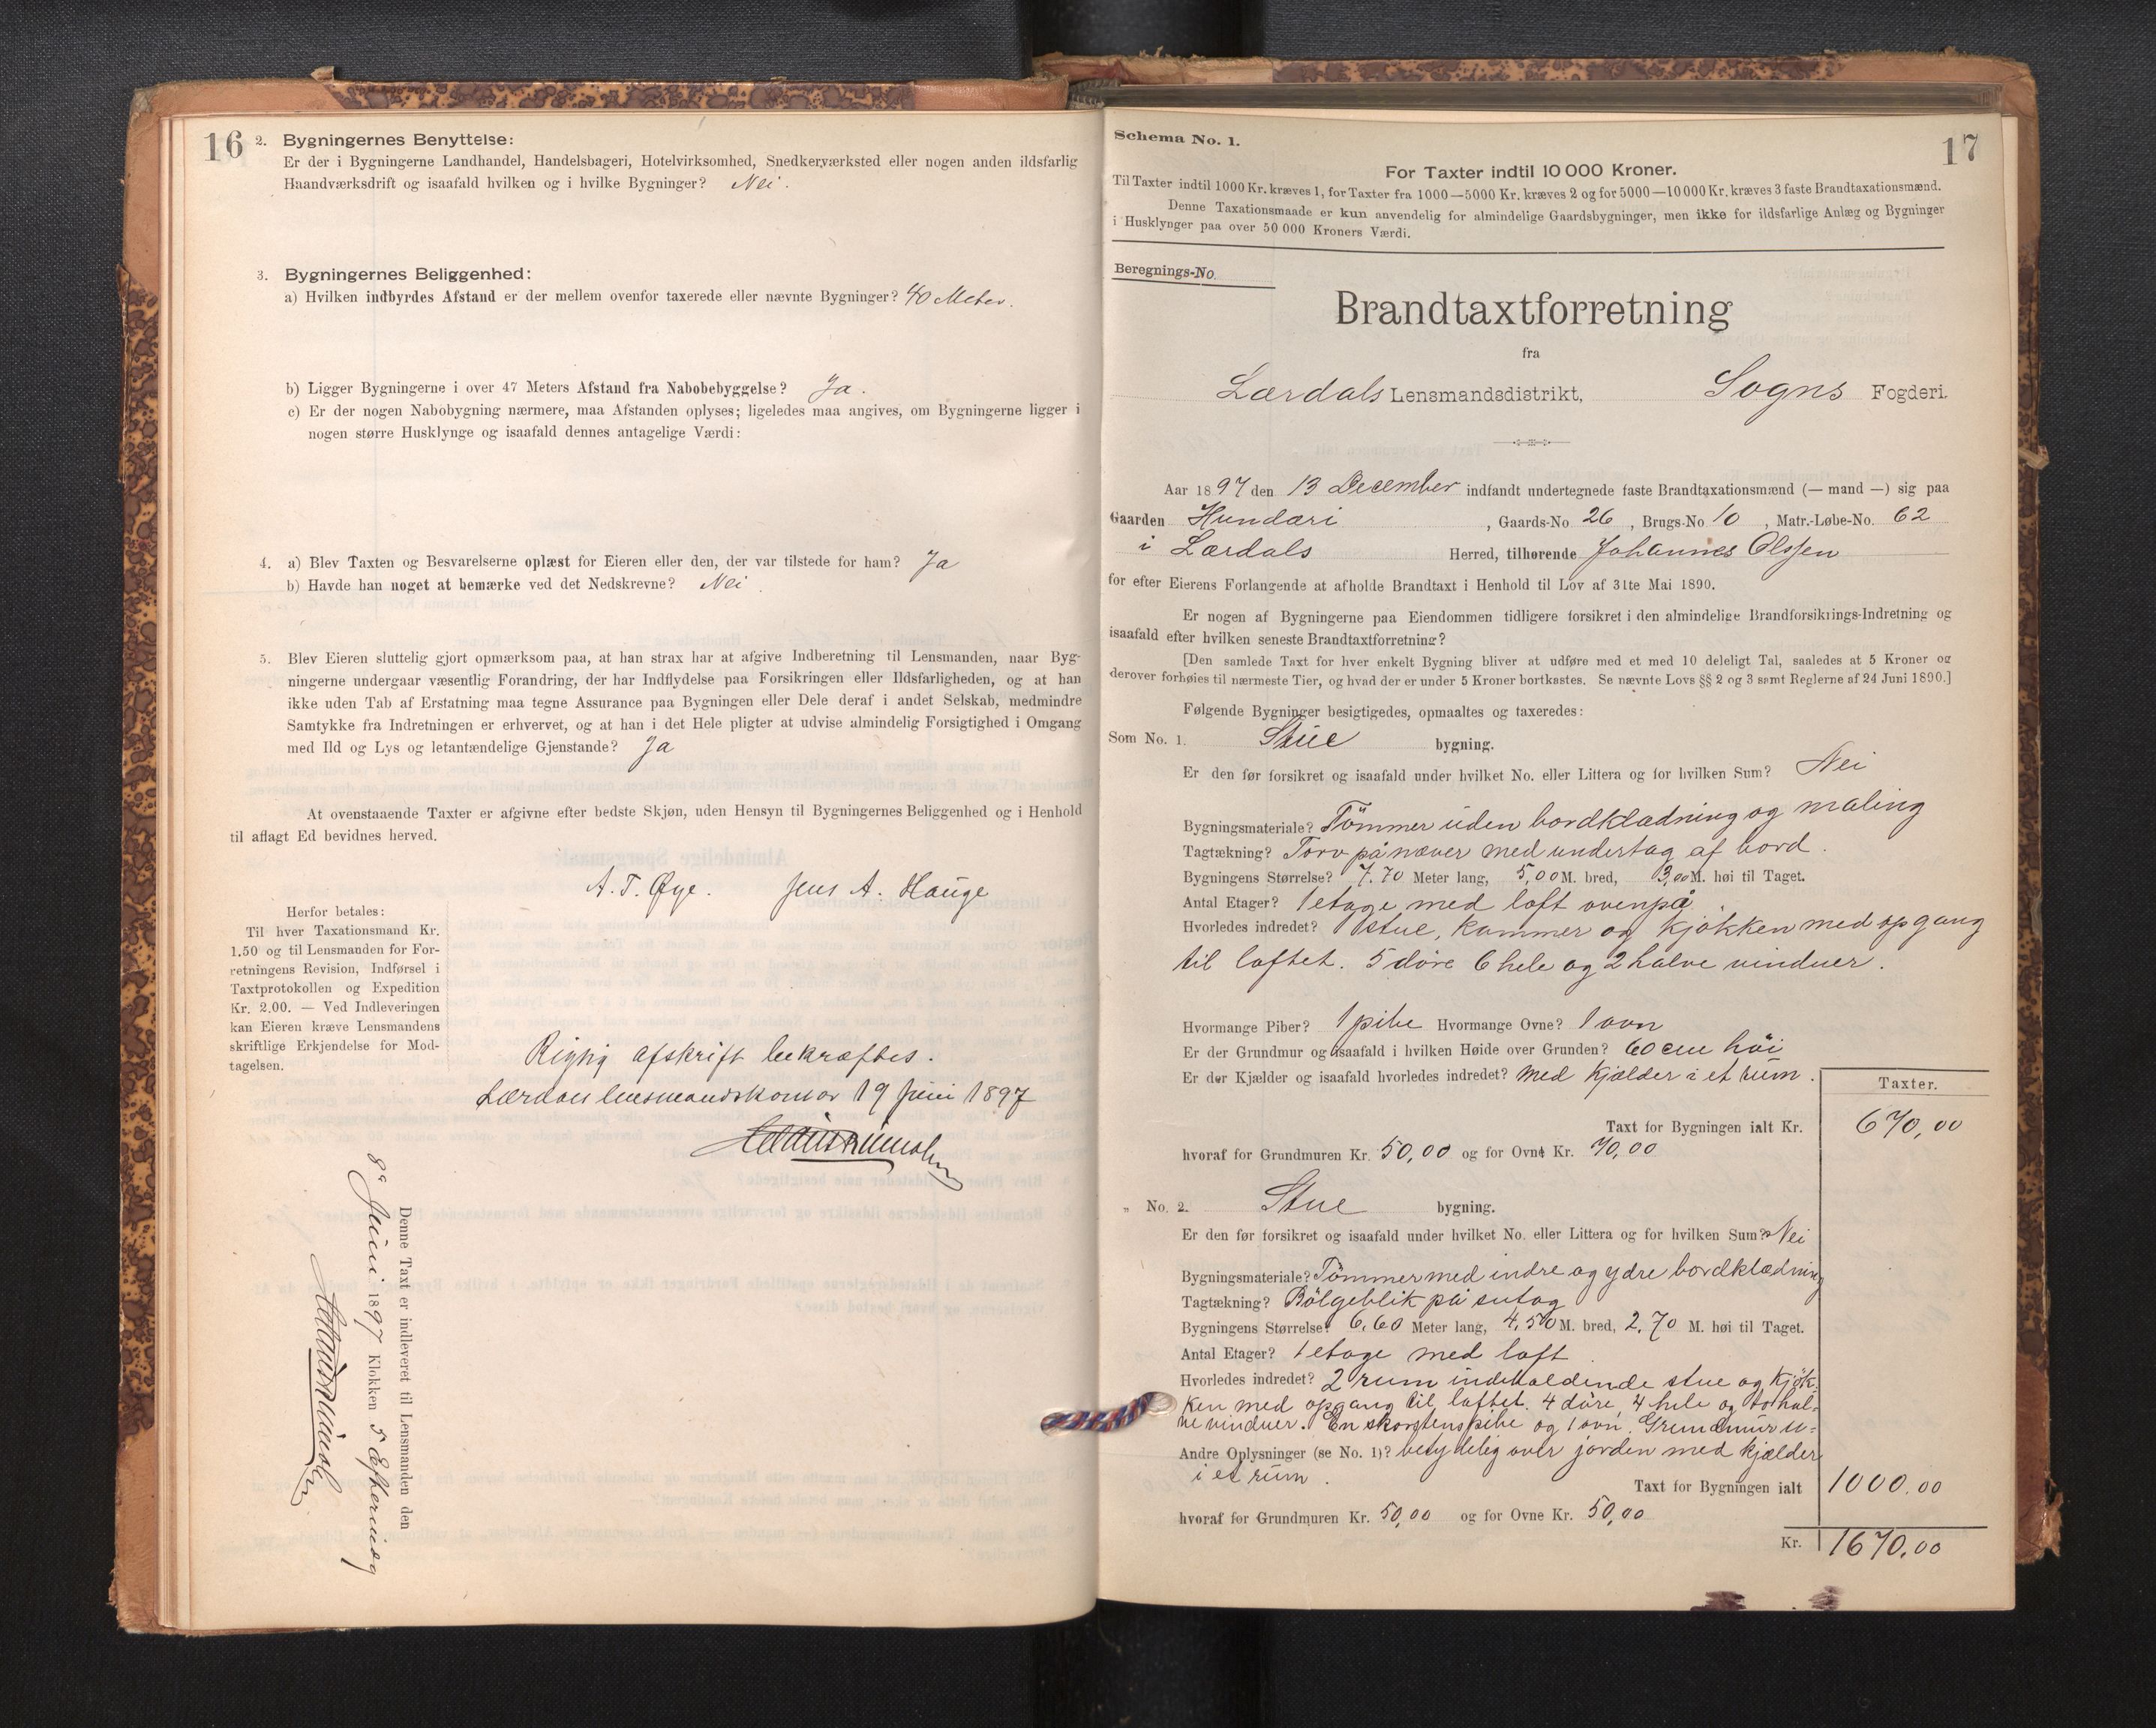 16
2. Bygningernes Benyttelse:
Er der i Bygningerne Landhandel, Handelsbageri, Hotelvirksomhed, Snedkerværksted eller nogen anden ildsfarlig
Haandværksdrift og isaafald hvilken og i hvilke Bygninger? Nei.
3. Bygningernes Beliggenhed:
a) Hvilken indbyrdes Afstand er der mellem ovenfor taxerede eller nævnte Bygninger? 40 Meter.
b) Ligger Bygningerne i over 47 Meters Afstand fra Nabobebyggelse? Ja.
c) Er der nogen Nabobygning nærmere, maa Afstanden oplyses; ligeledes maa angives, om Bygningerne ligger i
nogen større Husklynge og isaafald dennes antagelige Værdi:
4. a) Blev Taxten og Besvarelserne oplæst for Eieren eller den, der var tilstede for ham? Ja
b) Havde han noget at bemærke ved det Nedskrevne? Nei.
5. Blev Eieren sluttelig gjort opmærksom paa, at han strax har at afgive Indberetning til Lensmanden, naar Byg-
ningerne undergaar væsentlig Forandring, der har Indflydelse paa Forsikringen eller Ildsfarligheden, og at han
ikke uden Tab af Erstatning maa tegne Assurance paa Bygningen eller Dele deraf i andet Selskab, medmindre
Samtykke fra Indretningen er erhvervet, og at han i det Hele pligter at udvise almindelig Forsigtighed i Omgang
med Ild og Lys og letantændelige Gjenstande? Ja
At ovenstaaende Taxter er afgivne efter bedste Skjøn, uden Hensyn til Bygningernes Beliggenhed og i Henhold
til aflagt Ed bevidnes herved.
A. T. Øye. Jens A. Hauge
Herfor betales:
Til hver Taxationsmand Kr.
1.50 og til Lensmanden for For-
retningens Revision, Indførsel i
Taxtprotokollen og Expedition
Kr. 2.00. — Ved Indleveringen
kan Eieren kræve Lensmandens
skriftlige Erkjendelse for Mod-
tagelsen.
Rigtig afskrift bekræftes.
Lærdals lensmandskontor 19 Juni 1897
Denne Taxt er indleveret til Lensmanden den
8de Juni 1897 Klokken 5 Eftermidag
17
Schema No. 1.
For Taxter indtil 10 000 Kroner.
Til Taxter indtil 1000 Kr. kræves 1, for Taxter fra 1000—5000 Kr. kræves 2 og for 5000—10 000 Kr. kræves 3 faste Brandtaxationsmænd.
Denne Taxationsmaade er kun anvendelig for almindelige Gaardsbygninger, men ikke for ildsfarlige Anlæg og Bygninger
i Husklynger paa over 50 000 Kroners Værdi.
Beregnings-No.
Brandtaxtforretning
fra
Lærdals Lensmandsdistrikt, Sogns Fogderi.
Aar 1897 den 13 December indfandt undertegnede faste Brandtaxationsmænd (— mand —) sig paa
Gaarden Hundæri, Gaards-No 26, Brugs-No 10, Matr.-Løbe-No. 62
i Lærdals Herred, tilhørende Johannes Olssen
for efter Eierens Forlangende at afholde Brandtaxt i Henhold til Lov af 31te Mai 1890.
Er nogen af Bygningerne paa Eiendommen tidligere forsikret i den almindelige Brandforsikrings-Indretning og
isaafald efter hvilken seneste Brandtaxtforretning?
[Den samlede Taxt for hver enkelt Bygning bliver at udføre med et med 10 deleligt Tal, saaledes at 5 Kroner og
derover forhøies til nærmeste Tier, og hvad der er under 5 Kroner bortkastes. Se nævnte Lovs §§ 2 og 3 samt Reglerne af 24 Juni 1890.]
Følgende Bygninger besigtigedes, opmaaltes og taxeredes:
Som No. 1. Stue bygning.
Er den før forsikret og isaafald under hvilket No. eller Littera og for hvilken Sum? Nei
Bygningsmateriale? Tømmer uden bordklædning og maling
Tagtækning? Torv på næver med undertag af bord.
Bygningens Størrelse? 7.70 Meter lang, 5,00 M. bred, 3,00 M. høi til Taget.
Antal Etager? 1 etage med loft ovenpå
Hvorledes indredet? 1 stue, kammer og kjøkken med opgang
til loftet. 5 døre 6 hele og 2 halve vinduer.
Hvormange Piber? 1 pibe Hvormange Ovne? 1 ovn
Er der Grundmur og isaafald i hvilken Høide over Grunden? 60 cm høi
Er der Kjælder og isaafald hvorledes indredet? med Kjælder i et rum.
Taxter.
Taxt for Bygningen ialt Kr. 670,00
hvoraf for Grundmuren Kr. 50,00 og for Ovne Kr. 70,00
„ No. 2. Stue bygning.
Er den før forsikret og isaafald under hvilket No. eller Littera og for hvilken Sum? Nei
Bygningsmateriale? Tømmer med indre og ydre bordklædning
Tagtækning? Bølgeblik på sutag
Bygningens Størrelse? 6,60 Meter lang, 4,50 M. bred, 2,70 M. høi til Taget.
Antal Etager? 1 etage med loft
Hvorledes indredet? 2 rum indeholdende stue og kjøk-
ken med opgang til loftet. 4 døre, 4 hele og to hal-
ve vinduer. En skorstenspibe og 1 ovn. Grundmur u-
Andre Oplysninger (se No. 1)? betydelig over jorden med kjælder
i et rum.
Taxt for Bygningen ialt 1000,00
hvoraf for Grundmuren Kr. 50,00 og for Ovne Kr. 50,00
Kr. 1670,00